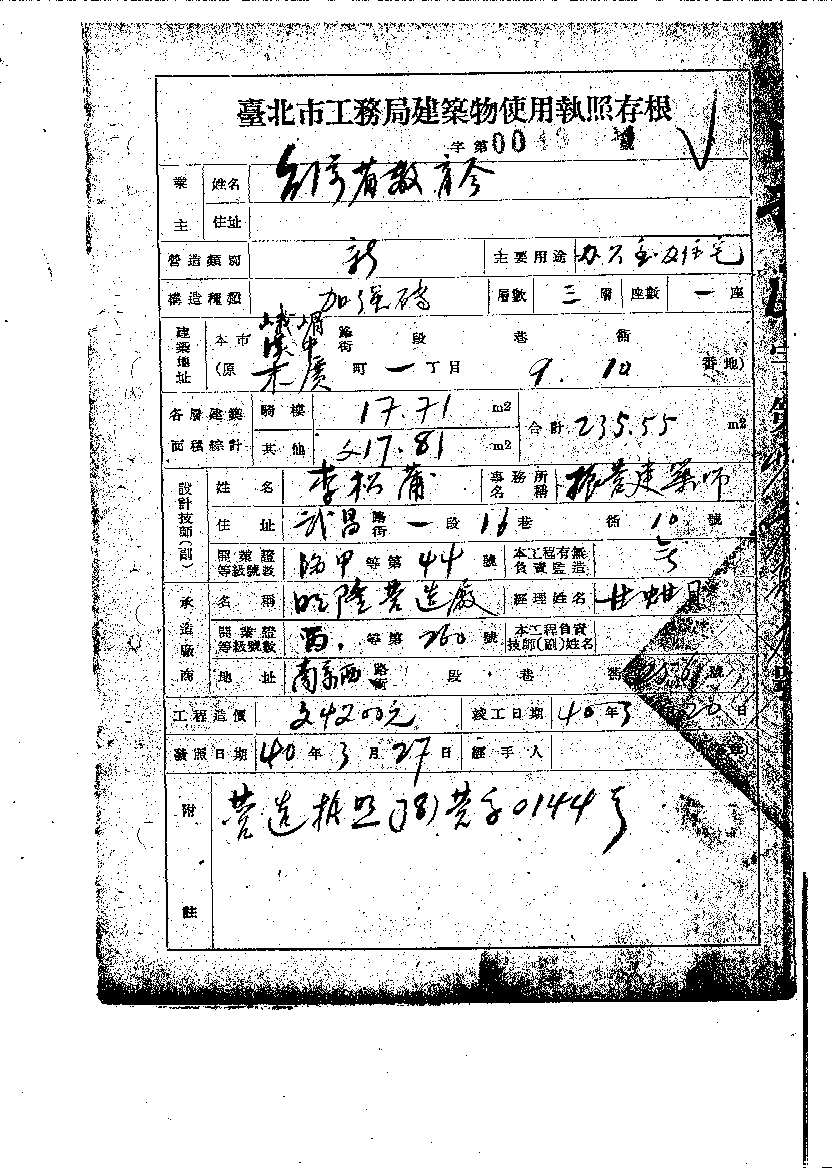 臺北市工務局建築物使用執照存根
字第0043號
業主 姓名 台灣省教育會
住址
營造類別 新 主要用途 办公室及住宅
構造種類 加强磚 層數 三層 座數 一座
建築地址 本市 峨嵋 漢中 路街 段 巷 衖
(原 末廣 町 一 丁目 9.10 番地)
各層建築面積綜計 騎樓 17.71 m2 合計 235.55 m2
其他 217.81 m2
設計技師(副) 姓名 李松蒲 事務所名稱 振营建築师
住址 武昌 路街 一段 16巷 衖 10號
開業證等級號數 甲等第44號 本工程有無負責監造
承造廠商 名稱 隆营造廠 經理姓名 甘
開業證等級號數 等第260號 本工程負責技師(副)姓名
地址 南京西 路街 段 巷 衖 號
工程造價 24200元 竣工日期 40年3 20日
發照日期 40年3月27日 經手人
附註 营造执照(38)营字0144号